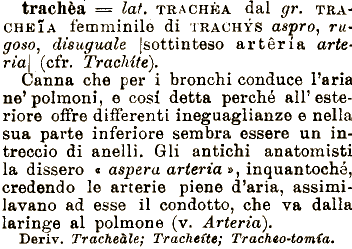 trachèa = lat. TRACHÈA dal gr. TRA-
CHEĨA femminile di TRACHYS aspro, ru-
goso, disuguale |sottinteso artêria arte-
ria| (cfr. Trachíte).
Canna che per i bronchi conduce l'aria
ne' polmoni, e cosí detta perché all' este-
riore offre differenti ineguaglianze e nella
sua parte inferiore sembra essere un in-
treccio di anelli. Gli antichi anatomisti
la dissero « aspera arteria », inquantoché,
credendo le arterie piene d'aria, assimi-
lavano ad esse il condotto, che va dalla
laringe al polmone (v. Arteria).
Deriv. Tracheàle; Tracheíte; Tracheo-tomía.